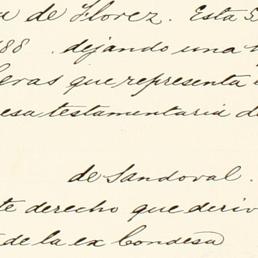 a de Florez. Esta S
88 . dejando una
eras que representa
esa testamentaria d
de Sandoval.
te derecho que deriv
de la ex Condesa